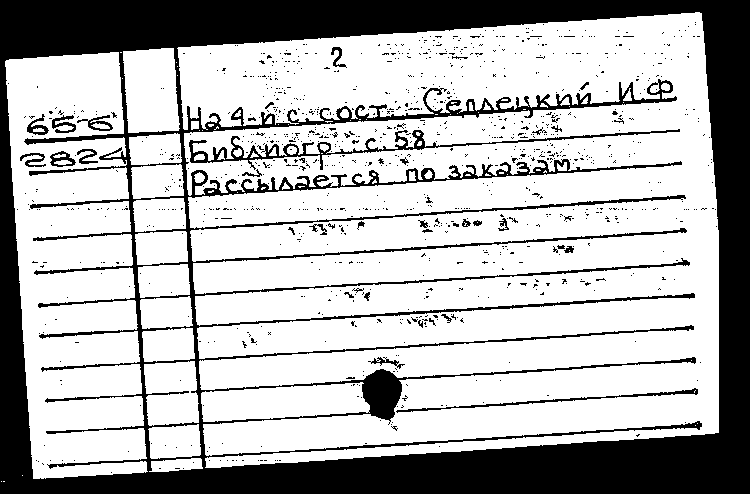 2
656 На 4-й с. сост.: Сеплецкий И.Ф
2824 Библиогр.: с. 58.
Рассылается по заказам.